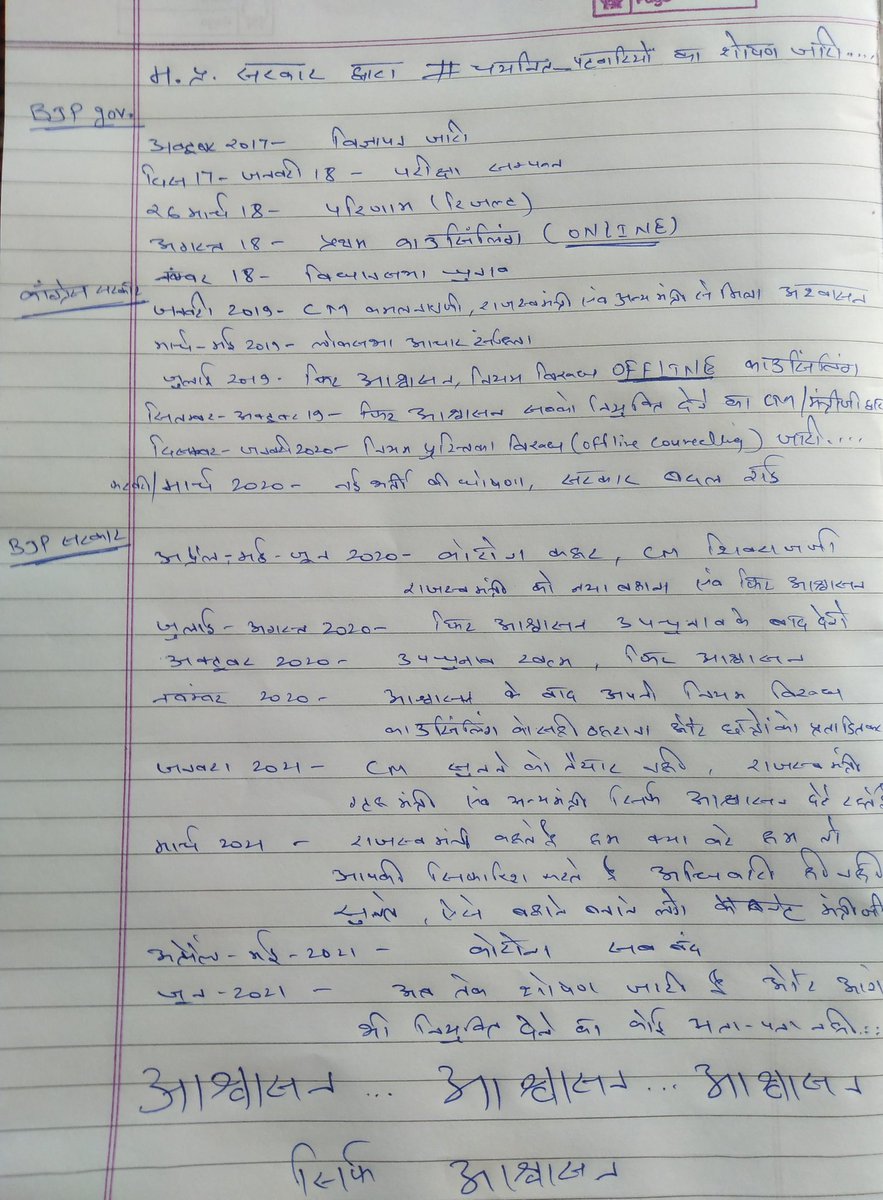 म. प्र. सरकार द्वारा #चयनित_पटवारियों का शोषण जारी....
BJP gov.
अक्टूबर 2017- विज्ञापन जारी
दिस 17- जनवरी 18- परीक्षा सम्पन्न
26 मार्च 18- परिणाम (रिजल्ट)
अगस्त 18- प्रथम काउंसिलिंग (ONLINE)
नवम्बर 18- विधानसभा चुनाव
कांग्रेस सरकार
जनवरी 2019- CM कमलनाथजी, राजस्वमंत्री एवं अन्य मंत्री से मिला अश्वासन
मार्च-मई 2019- लोकसभा आचार संहिता
जुलाई 2019- फिर आश्वासन, नियम विरुध्द OFFLINE काउंसिलिंग
सितम्बर-अक्टूबर 19- फिर आश्वासन सबको नियुक्ति देने का CM/मंत्रीजी द्वारा
दिसम्बर-जनवरी 2020- नियम पुस्तिका विरुध्द (offline counselling) जारी....
फरवरी/मार्च 2020- नई भर्ती की घोषणा, सरकार बदल गई
BJP सरकार
अप्रैल-मई-जून 2020- कोरोना कहर, CM शिवराजजी
राजस्वमंत्री को नया बहाना एवं फिर आश्वासन
जुलाई-अगस्त 2020- फिर आश्वासन उपचुनाव के बाद देंगे
अक्टूबर 2020- उपचुनाव खत्म, फिर आश्वासन
नवम्बर 2020- आश्वासन के बाद अपनी नियम विरुध्द
काउंसिलिंग को सही ठहराना और छात्रों को प्रताडित कर
जनवरी 2021- CM सुनने को तैयार नही, राजस्व मंत्री
गृह मंत्री एवं अन्यमंत्री सिर्फ आश्वासन देते रहते है
मार्च 2021- राजस्व मंत्री कहते है हम क्या करे हम तो
आपकी सिफारिश करते है अधिकारी ही नही
सुनते, ऐसे बहाने बनाने लगे मंत्री जी
अप्रैल-मई-2021- कोरोना सब बंद
जून-2021- अब तक शोषण जारी है और आगे
भी नियुक्ति देने का कोई अता-पता नही...
आश्वासन... आश्वासन... आश्वासन
सिर्फ आश्वासन